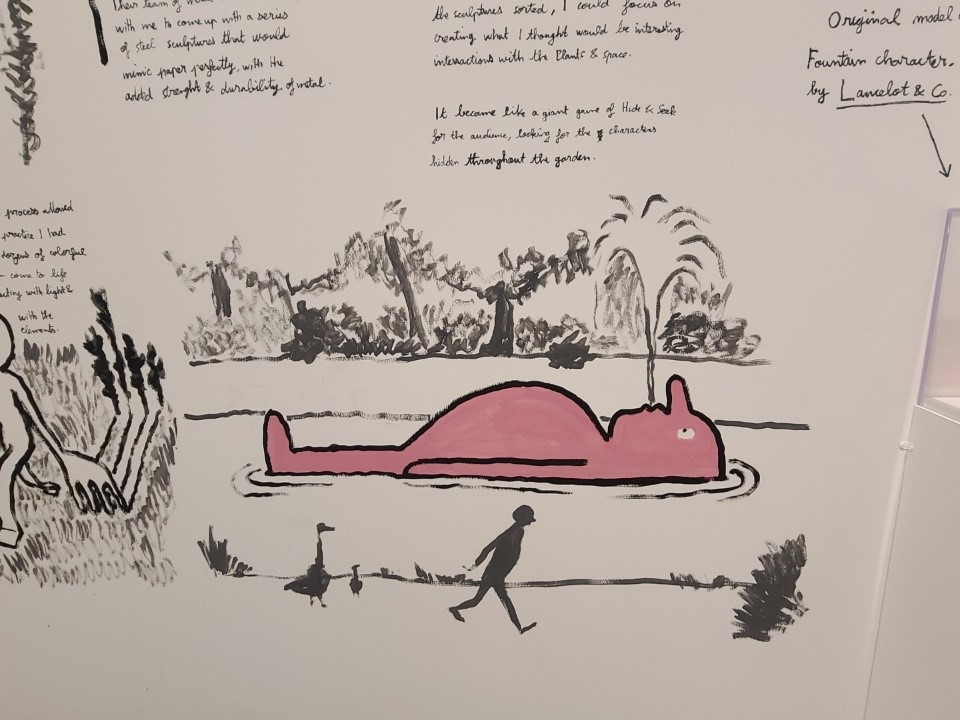 Their team of
with me to come up with a series
of steel sculptures that would
mimic paper perfectly, with the
added strenght & durability of metal.
the sculptures sorted, I could focus on
creating what I thought would be interesting
interactions with the Plants & Space.
It became like a giant game of Hide & Seek
for the audience, looking for the characters
hidden throughout the garden.
Original model
Fountain character.
by Lancelot & Co.
process allowed
practice I had
dozens of colorful
come to life
acting with light &
with the
elements.